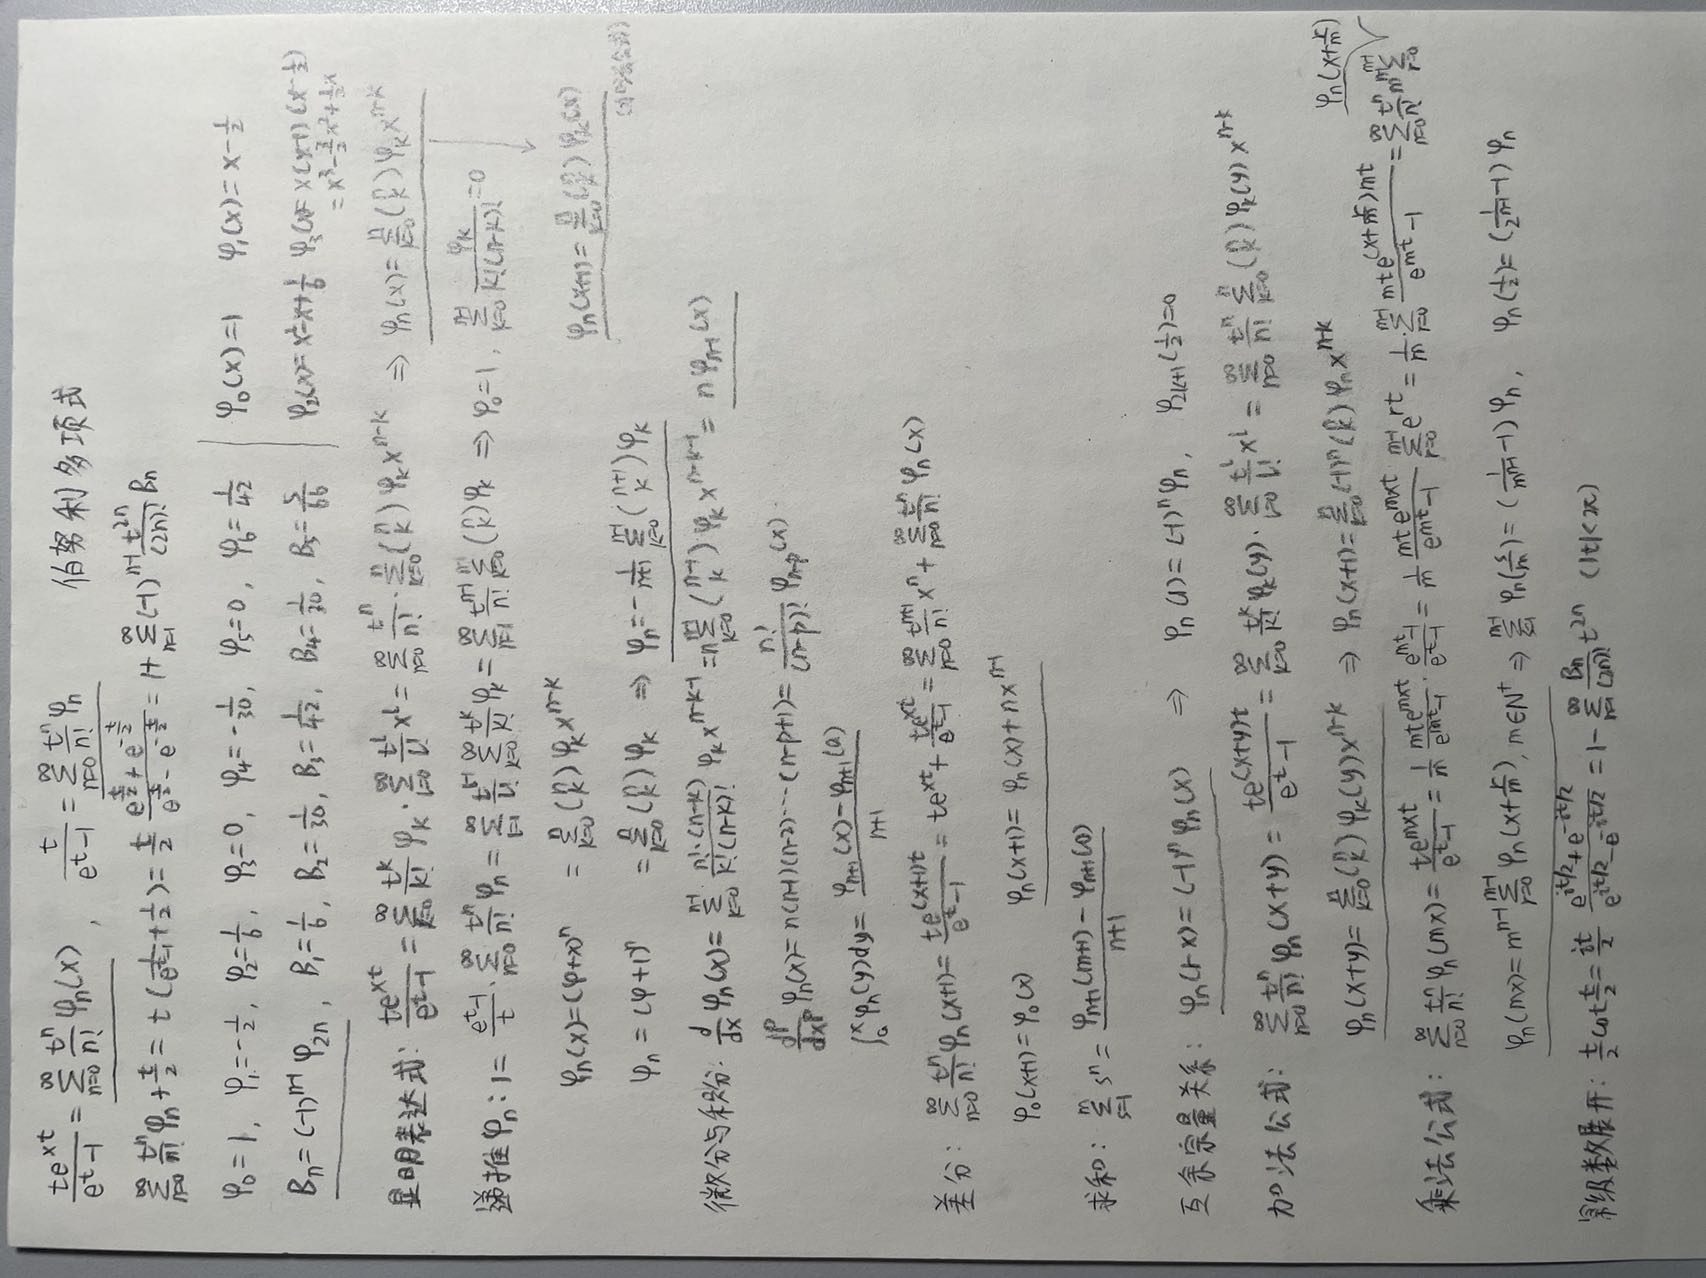 te^{xt}/(e^t-1) = ∑_{n=0}^∞ t^n/n! φ_n(x), t/(e^t-1) = ∑_{n=0}^∞ t^n/n! φ_n 伯努利多项式
∑_{n=0}^∞ t^n/n! φ_n + t/2 = t(1/(e^t-1) + 1/2) = t/2 (e^{t/2}+e^{-t/2})/(e^{t/2}-e^{-t/2}) = 1+∑_{n=1}^∞ (-1)^{n-1} t^{2n}/(2n)! B_n
φ_0=1, φ_1=-1/2, φ_2=1/6, φ_3=0, φ_4=-1/30, φ_5=0, φ_6=1/42 | φ_0(x)=1 φ_1(x)=x-1/2
B_n=(-1)^{n-1} φ_{2n}, B_1=1/6, B_2=1/30, B_3=1/42, B_4=1/30, B_5=5/66 | φ_2(x)=x^2-x+1/6 φ_3(x)=x(x-1)(x-1/2)
=x^3-3/2 x^2+1/2 x
显明表达式: te^{xt}/(e^t-1) = ∑_{k=0}^∞ t^k/k! φ_k · ∑_{l=0}^∞ t^l/l! x^l = ∑_{n=0}^∞ t^n/n! · ∑_{k=0}^n (n k) φ_k x^{n-k} ⇒ φ_n(x)=∑_{k=0}^n (n k) φ_k x^{n-k}
递推φ_n: 1= (e^t-1)/t · ∑_{n=0}^∞ t^n/n! φ_n = ∑_{l=1}^∞ t^{l-1}/l! ∑_{k=0}^∞ t^k/k! φ_k = ∑_{n=1}^∞ t^{n-1}/n! ∑_{k=0}^{n-1} (n k) φ_k ⇒ φ_0=1, ∑_{k=0}^{n-1} φ_k/(k!(n-k)!) =0
φ_n(x)=(φ+x)^n =∑_{k=0}^n (n k) φ_k x^{n-k} φ_n(x+1)=∑_{k=0}^n (n k) φ_k(x)
φ_n=(φ+1)^n =∑_{k=0}^n (n k) φ_k ⇒ φ_n=-1/(n+1) ∑_{k=0}^{n-1} (n+1 k) φ_k
微分与积分: d/dx φ_n(x)=∑_{k=0}^{n-1} n!·(n-k)/(k!(n-k)!) φ_k x^{n-k-1} = n∑_{k=0}^{n-1} (n-1 k) φ_k x^{n-k-1} = nφ_{n-1}(x)
d^p/dx^p φ_n(x)=n(n-1)(n-2)···(n-p+1)= n!/(n-p)! φ_{n-p}(x)
∫_a^x φ_n(y)dy= (φ_{n+1}(x)-φ_{n+1}(a))/(n+1)
差分: ∑_{n=0}^∞ t^n/n! φ_n(x+1)= te^{(x+1)t}/(e^t-1) = te^{xt}+ te^{xt}/(e^t-1) = ∑_{n=0}^∞ t^{n+1}/n! x^n + ∑_{n=0}^∞ t^n/n! φ_n(x)
φ_0(x+1)=φ_0(x) φ_n(x+1)= φ_n(x)+nx^{n-1}
求和: ∑_{s=1}^m s^n = (φ_{n+1}(m+1)-φ_{n+1}(0))/(n+1)
互余宗量关系: φ_n(1-x)=(-1)^n φ_n(x) ⇒ φ_n(1)=(-1)^n φ_n, φ_{2k+1}(1/2)=0
加法公式: ∑_{n=0}^∞ t^n/n! φ_n(x+y)= te^{(x+y)t}/(e^t-1) = ∑_{k=0}^∞ t^k/k! φ_k(y)·∑_{l=0}^∞ t^l/l! x^l = ∑_{n=0}^∞ t^n/n! ∑_{k=0}^n (n k) φ_k(y) x^{n-k}
φ_n(x+y)=∑_{k=0}^n (n k) φ_k(y)x^{n-k} ⇒ φ_n(x+1)=∑_{k=0}^n (-1)^n (n k) φ_n x^{n-k} φ_n(x+r/m)
乘法公式: ∑_{n=0}^∞ t^n/n! φ_n(mx)= te^{mxt}/(e^t-1) = 1/m mte^{mxt}/(e^{mt}-1) · (e^{mt}-1)/(e^t-1) = 1/m mte^{mxt}/(e^{mt}-1) ∑_{r=0}^{m-1} e^{rt} = 1/m · ∑_{r=0}^{m-1} mte^{(x+r/m)mt}/(e^{mt}-1) = ∑_{n=0}^∞ t^n/n! m^{n-1} ∑_{r=0}^{m-1}
φ_n(mx)=m^{n-1} ∑_{r=0}^{m-1} φ_n(x+r/m), m∈N^+ ⇒ ∑_{s=1}^{m-1} φ_n(s/m)=(1/m^{n-1} -1)φ_n, φ_n(1/2)=(1/2^{n-1} -1)φ_n
幂级数展开: t/2 cot t/2 = it/2 (e^{it/2}+e^{-it/2})/(e^{it/2}-e^{-it/2}) = 1-∑_{n=1}^∞ B_n/(2n)! t^{2n} (|t|<2π)